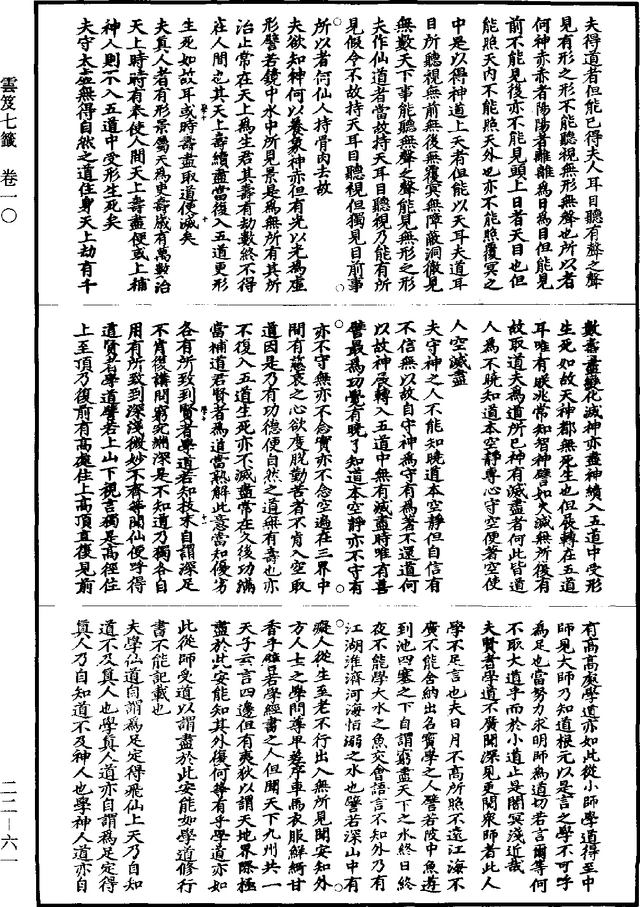 夫得道者但能已得夫人耳目聽有聲之聲
見有形之形不能聽視無形無聲也所以者
何神亦赤者陽陽者離離為日為目但能見
前不能見後亦不能見頭上日者天目也但
能照天內不能照天外也亦不能照覆冥之
中是以得神道上天者但能以天耳夫道耳
目所聽視無前無後無覆冥無障蔽洞徹見
無數天下事能聽無聲之聲能見無形之形
夫作仙道者當故持天耳目聽視乃能有所
見假令不故持天耳目聽視但獨見目前事
所以者何仙人持骨肉去故
夫欲知神何以養象神亦但有光以光為虛
形譬若鏡中水中所見景是為無所有其所
治止常在天上為生君其壽有劫數終不得
在人間也其天上壽續盡當復入五道更形
生死如故耳或時壽盡取道便滅矣
夫真人者有形景屬天為吏壽歲有萬數治
天上時時有奉使人間天上壽盡便或上補
神人則不入五道中受形生死矣
夫守太虛無得自然之道住身天上劫有千
數壽盡變化滅神亦盡神續入五道中受形
生死如故天神都無死生也但展轉在五道
耳唯有朕兆常知智神譬如火滅無所復有
故取道夫為道所已神有滅盡者何此皆道
人為不曉知道本空靜專心守空便著空使
人空滅盡
夫守神之人不能知曉道本空靜但自信有
不信無以故自守神為守有為著不還道何
以故神展轉入五道中無有滅盡時唯有善
譬最為功覺有曉了知道本空靜亦不守有
亦不守無亦不念實亦不念空遍在三界中
間有慈哀之心欲度脫勤苦者不肯入空取
道因是乃有功德便自然之道無有壽也亦
不復入五道生死亦不滅盡常在久後功滿
當補道君賢者為道當熟解此意當知優劣
各有所致到賢者學道若知技末自謂深足
不肯復講問窮究淵深是不知道乃獨各自
用有所致到深淺微妙不齊等聞仙便呼得
道賢者學道譬若上山下視言獨是高徑住
上至頂乃復前有高處住上高頂直復見前
有高高處學道亦如此從小師學道得至中
師見大師乃知道根元以是言之學不可呼
為足也當努力求明師為道切若言爾等何
不取大道乎而於小道止是闇冥淺近哉
夫賢者學道不廣聞深見更閱衆師者此人
學不足言也夫日月不高所照不遠江海不
廣不能含納出名寶學之人譬若陂中魚遊
到池四塞之下自謂窮盡天下之水終日終
夜不能學大水之魚交會語言不知外乃有
江湖淮濟河海恬溺之水也譬若深山中有
癡人從生至老不行出入無所見聞安知外
方人士之學問尊卑差序車馬衣服鮮綺甘
香乎譬若學經書之人但聞天下九州共一
天子云言四邊但有夷狄以謂天地界際極
盡於此安能知其外復何等有乎學道亦如
此從師受道以謂盡於此安能如學道修行
書不能記載也
夫學仙道自謂為足定得飛仙上天乃自知
道不及真人也學真人道亦自謂為足定得
真人乃自知道不及神人也學神人道亦自
雲笈七籤 卷一〇
二二—六一